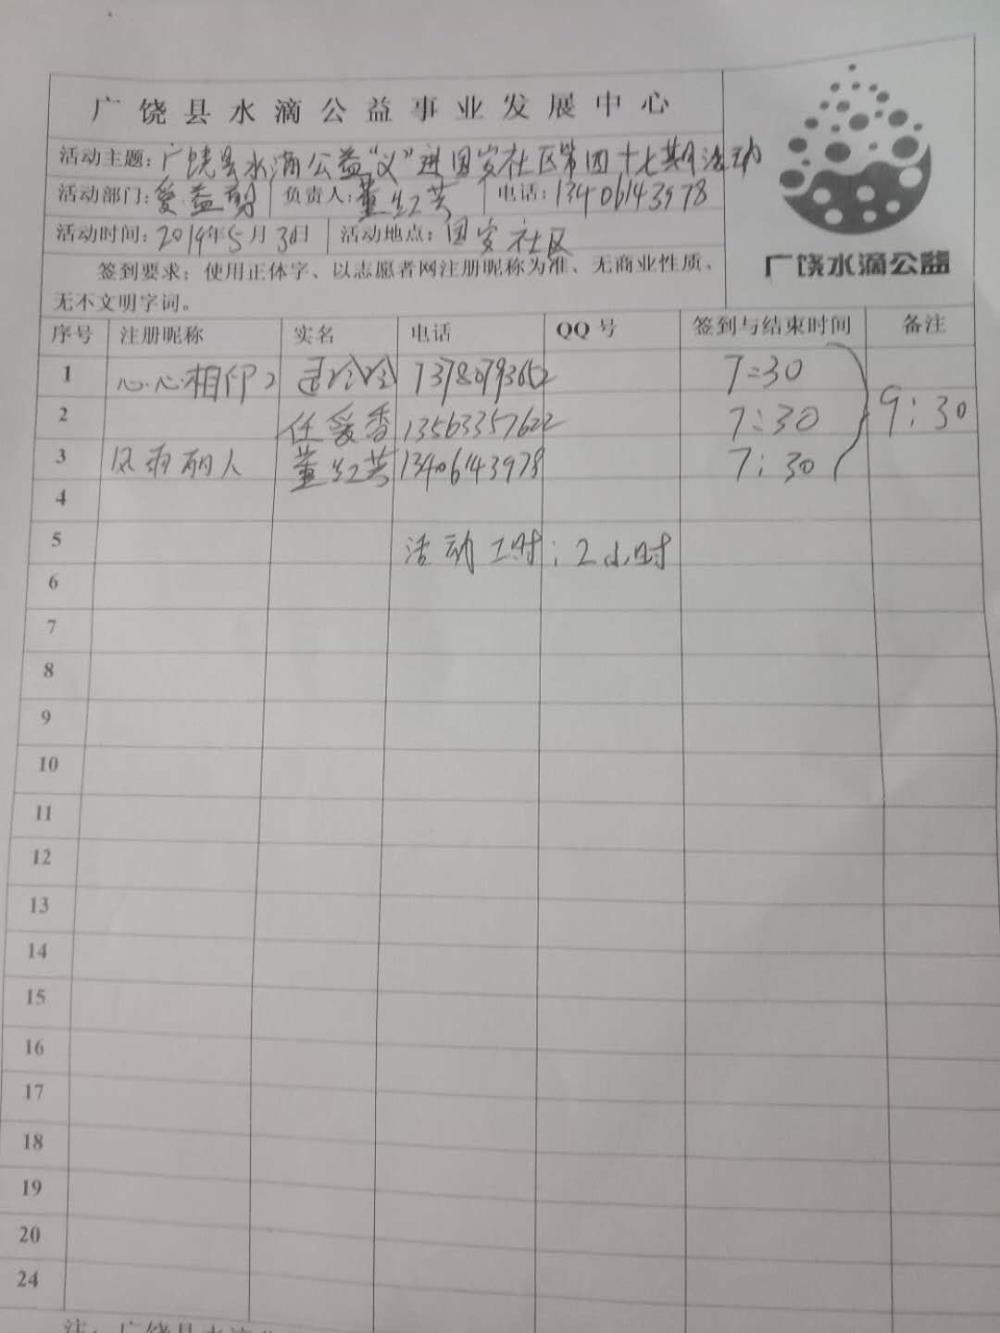 广饶县水滴公益事业发展中心
活动主题:广饶县水滴公益"义"进国安社区第四十七期活动
活动部门:爱益剪 负责人:董红芸 电话:13406143978
活动时间:2019年5月30日 活动地点:国安社区
签到要求:使用正体字、以志愿者网注册昵称为准、无商业性质、
无不文明字词。
广饶水滴公益
序号 注册昵称 实名 电话 QQ号 签到与结束时间 备注
1 心心相印2 冷冷 7:30
2 任爱香 13563357622 7:30 9:30
3 风雨丽人 董红芸 13406143978 7:30
4
5 活动工时:2小时
6
7
8
9
10
11
12
13
14
15
16
17
18
19
20
24
注:广饶县水滴